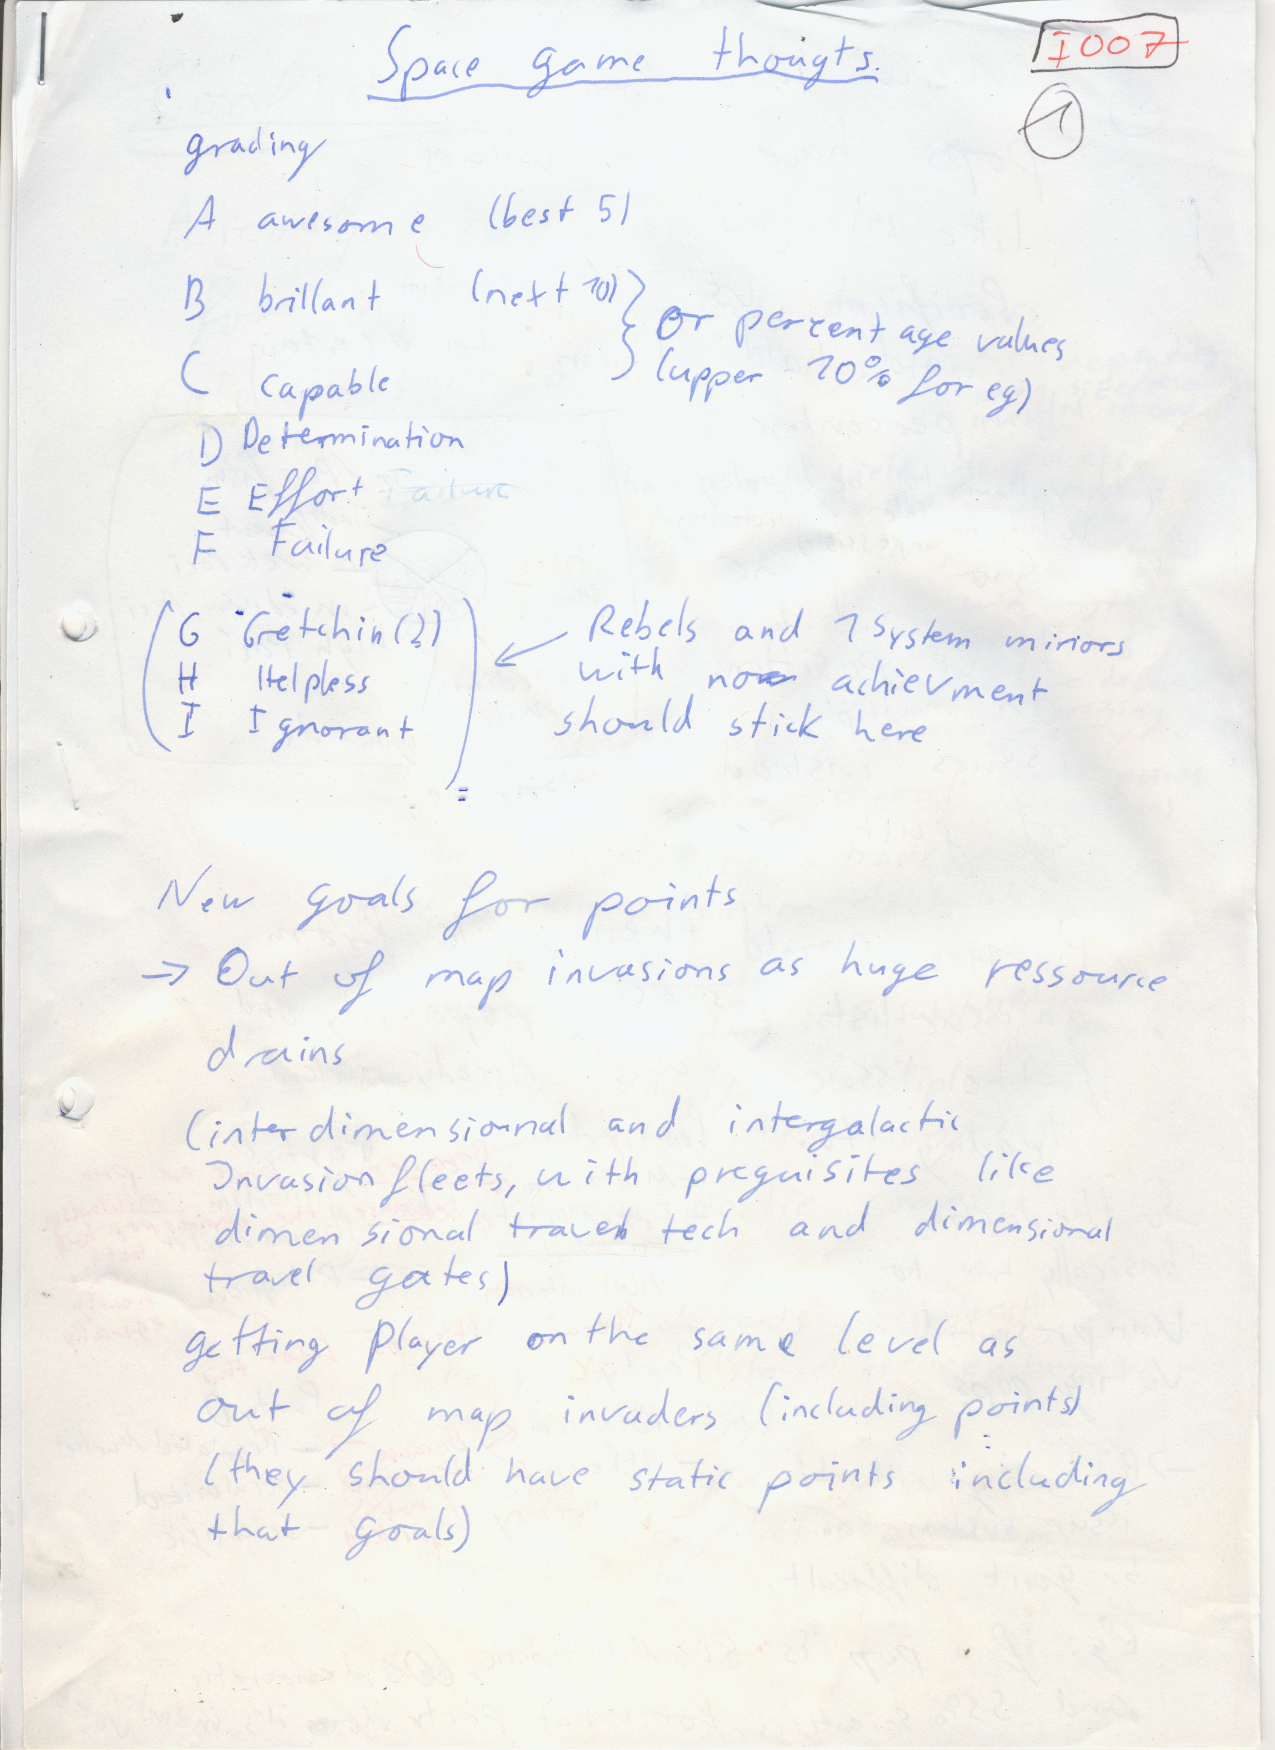 Space game thougts.
I007
1
grading
A awesome (best 5)
B brillant (next 10)
C capable
or percentage values
(upper 10% for eg)
D Determination
E Effort Failure
F Failure
G Gretchin(?)
H Helpless
I Ignorant
Rebels and 1 System miriors
with no achievment
should stick here
New goals for points
→ Out of map invasions as huge ressource
drains
(interdimensionnal and intergalactic
Invasionfleets, with prequisites like
dimensional travel tech and dimensional
travel gates)
getting Player on the same level as
out of map invaders (including points)
(they should have static points including
that goals)